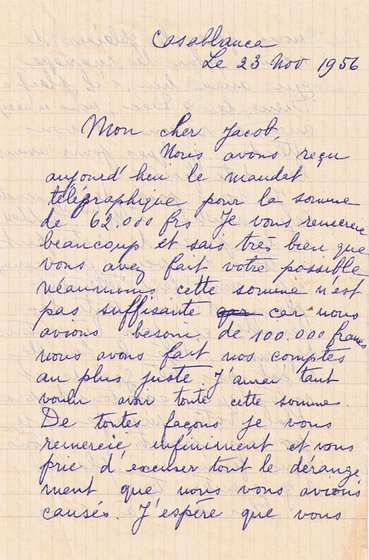 Casablanca
Le 23 Nov 1956
Mon cher Jacob,
Nous avons reçu
aujourd'hui le mandat
télégraphique pour la somme
de 62.000 frs. Je vous remercie
beaucoup et sais très bien que
vous avez fait votre possible
néanmoins cette somme n'est
pas suffisante car nous
avions besoin de 100.000 francs
nous avons fait nos comptes
au plus juste. J'aurai tant
voulu avoir toute cette somme.
De toutes façons je vous
remercie infiniment et vous
prie d'excuser tout le dérange
ment que nous vous avions
causés. J'espère que vous